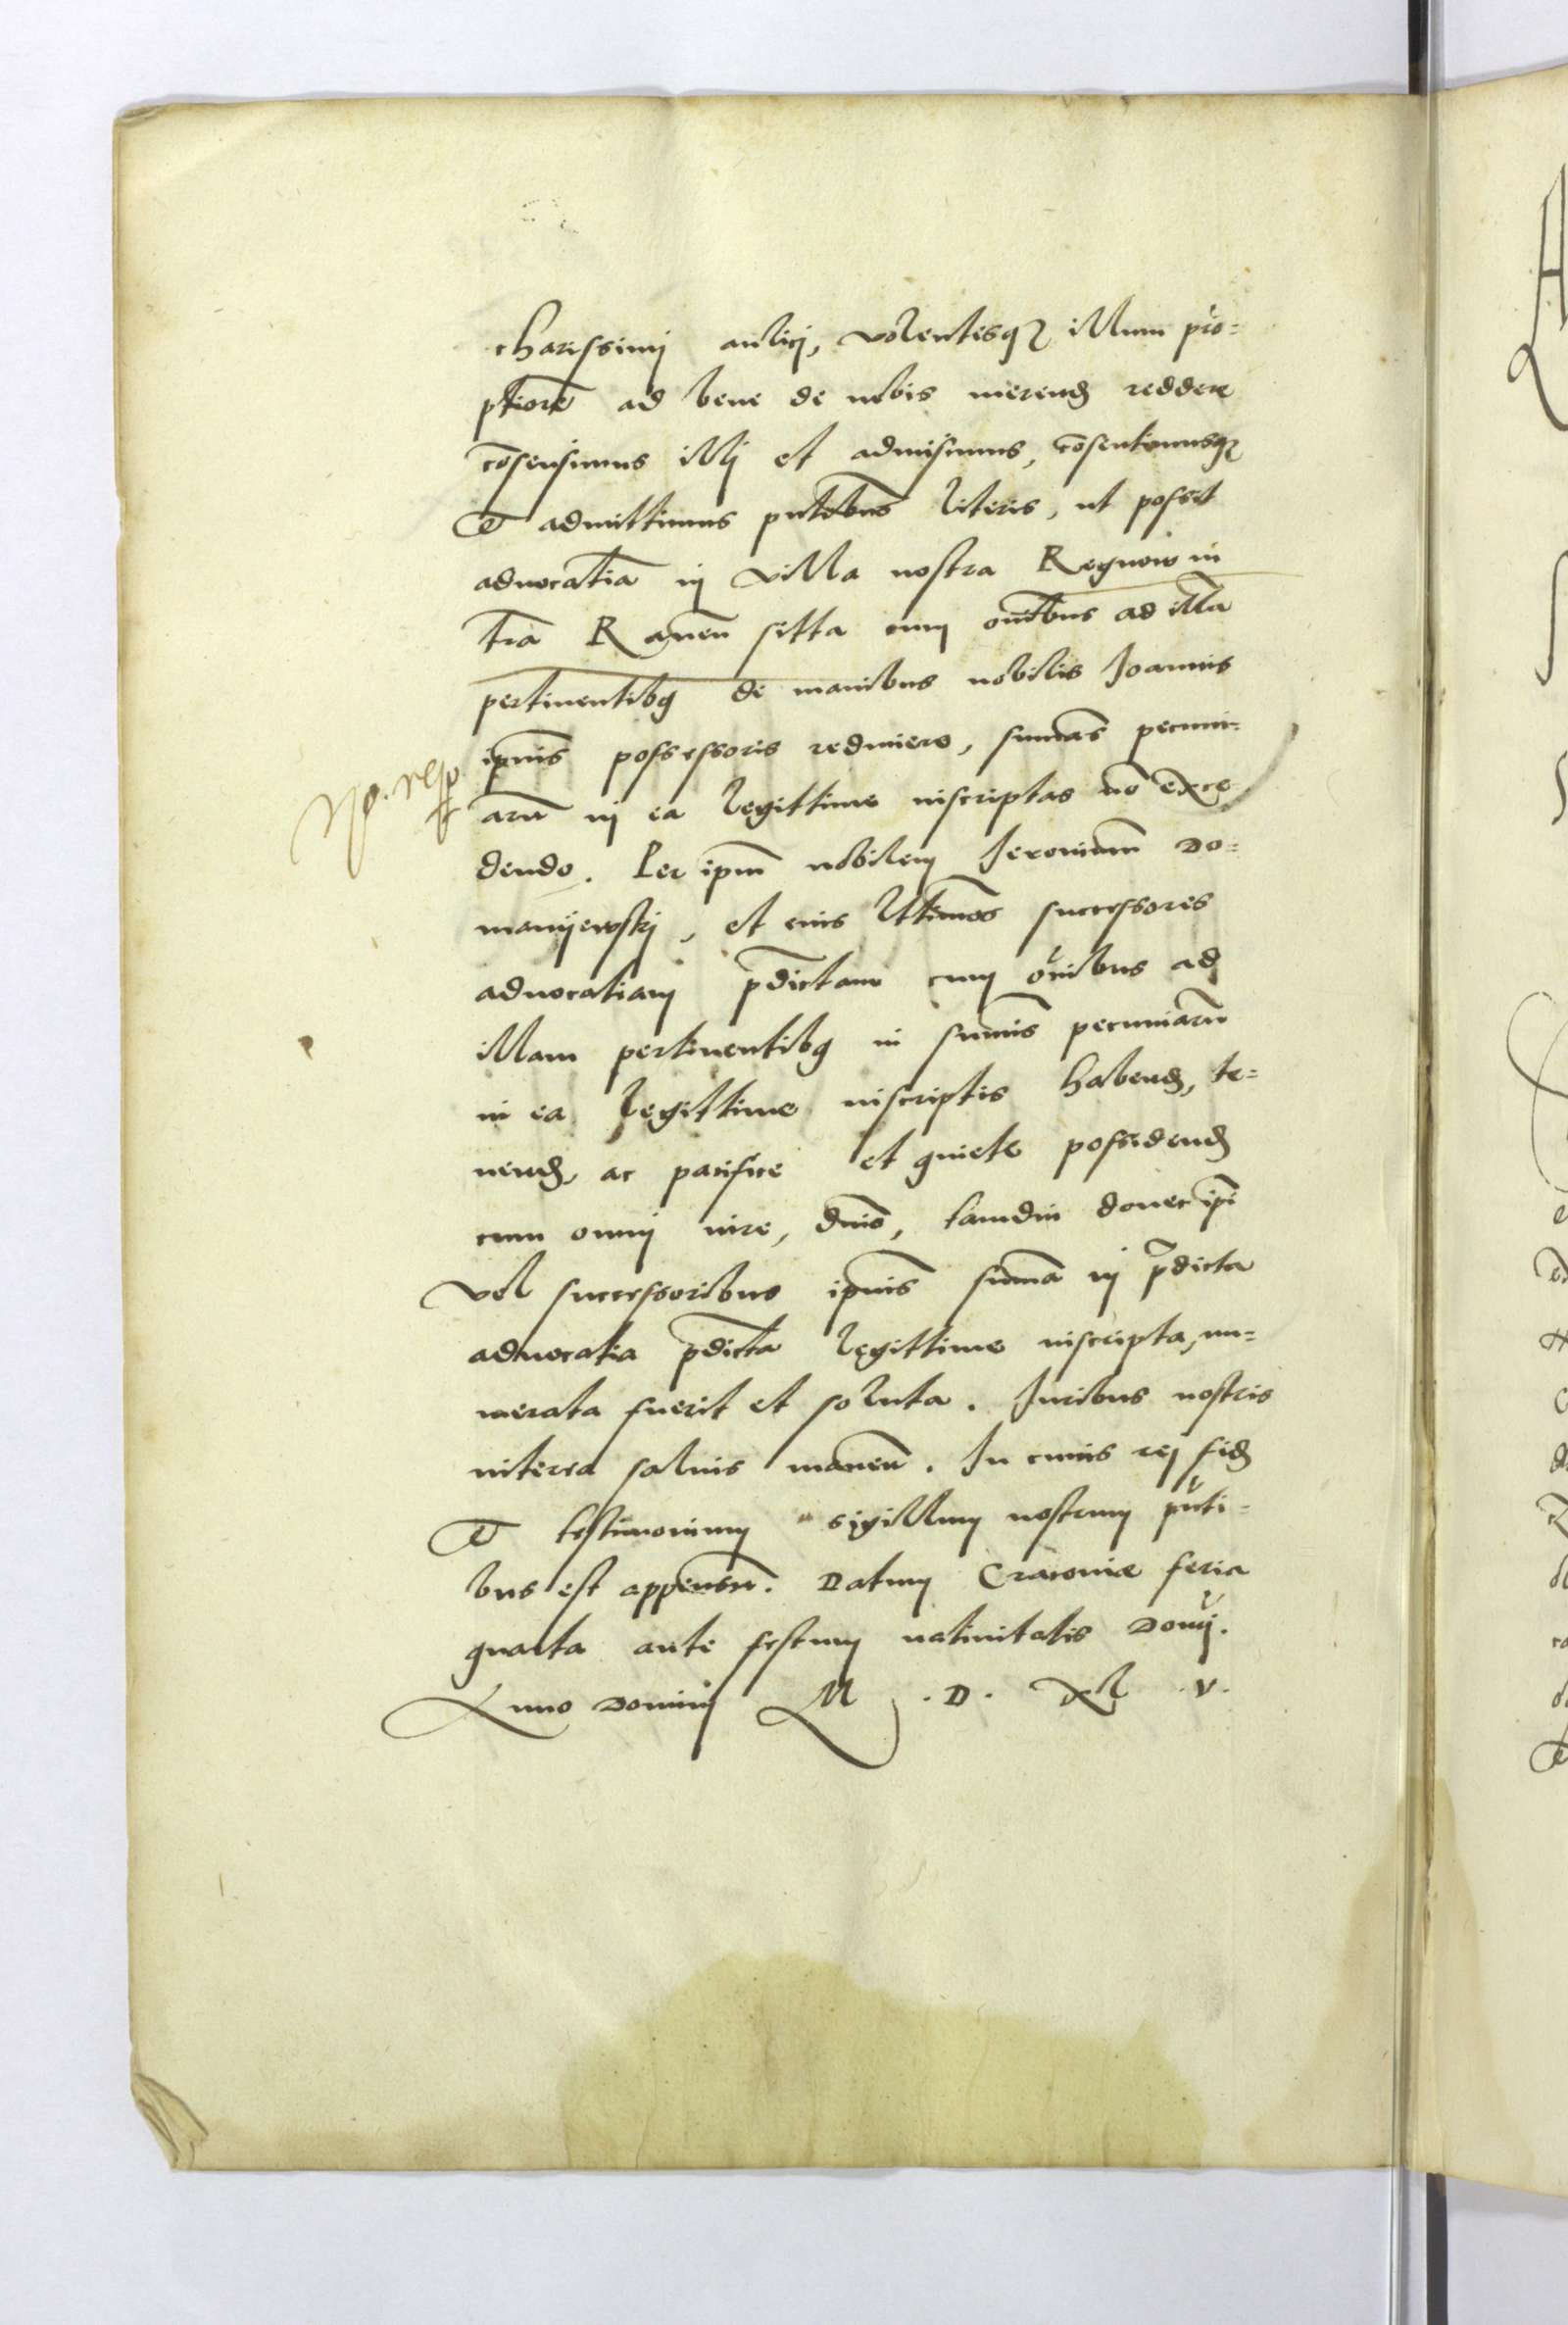 charissimj aulicj, volentesq₃ illum pro=
ptiorē ad bene de nobis merend reddere
cōsensimus illj et admisimus, cōsentimusq₃
et admittimus pñtibus literis, ut possit
aduocatiā in villa nostra Regnow in
trā Raueñ sitta cum omībus ad illā
pertinentibɜ de manibus nobilis Joannis
ipīus possessoris redimere, sumās pecuni=
arū in ea legittime inscriptas nō exce
dendo. Per ipm̄ nobilem Jeronimū Do=
manijewskj, et eius lttimos successores
aduocatiam p̄dictam cum om̄ibus ad
illam pertinentibɜ in sum̄is pecuniarū
in ea legittime inscriptis habend, te=
nend, ac pacifice et quiete possidend
cum omnj iure, dnīo, tamdiu donec ipī
vel successoribus ipīus sum̄a in p̄dicta
aduocatia p̄dicta legittime inscripta, nu=
merata fuerit et soluta. Juribus nostris
interea saluis maneñ. In cuius rej fid
et testimonium sigillum nostrum pn̄ti=
bus est appensū. Datum Cracouiæ feria
quarta ante festum natiuitatis Domj.
Anno Dominj M .D. Xl .v.